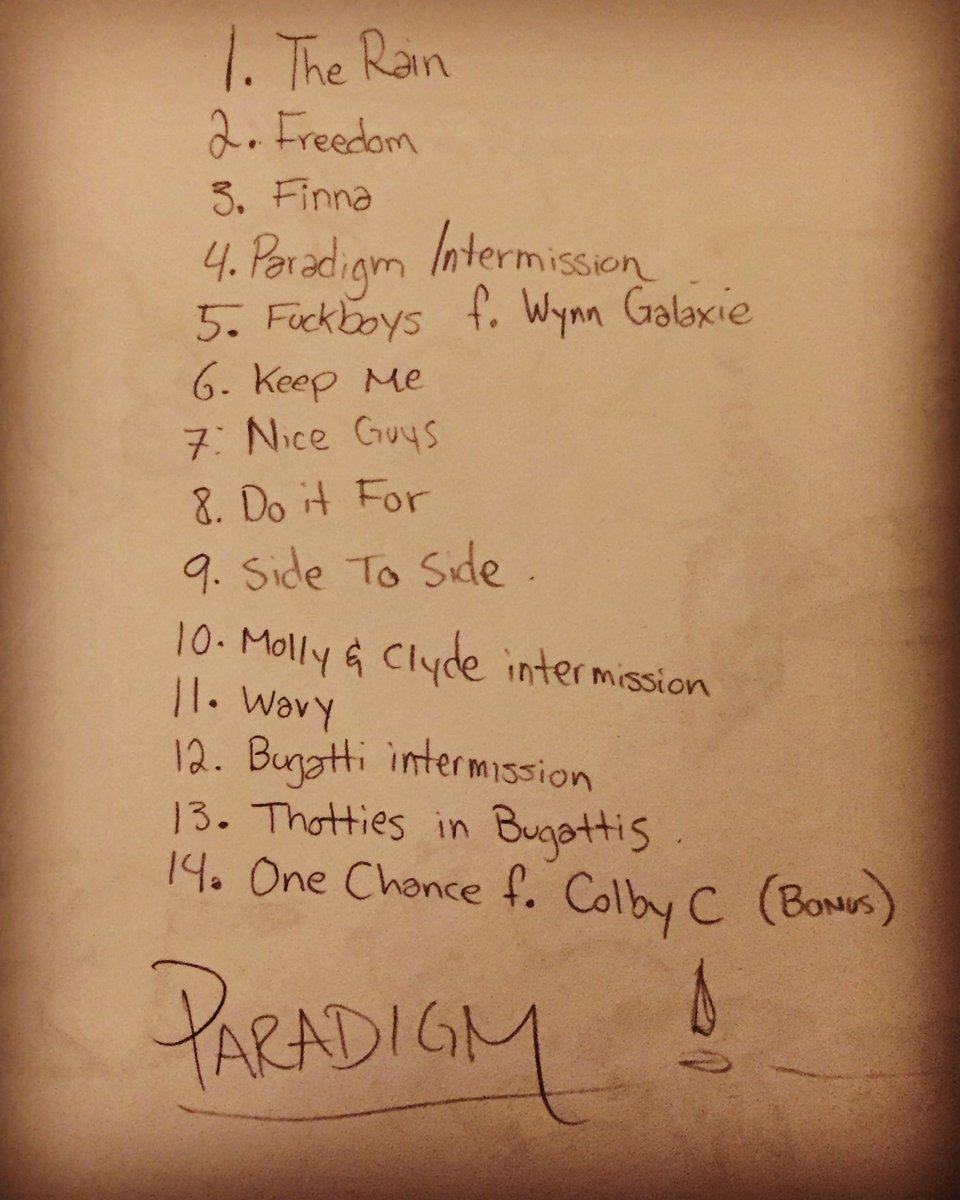 1. The Rain
2. Freedom
3. Finna
4. Paradigm Intermission
5. Fuckboys f. Wynn Galaxie
6. Keep Me
7. Nice Guys
8. Do it For
9. Side To Side
10. Molly & Clyde intermission
11. Wavy
12. Bugatti intermission
13. Thotties in Bugattis
14. One Chance f. Colby C (Bonus)
PARADIGM